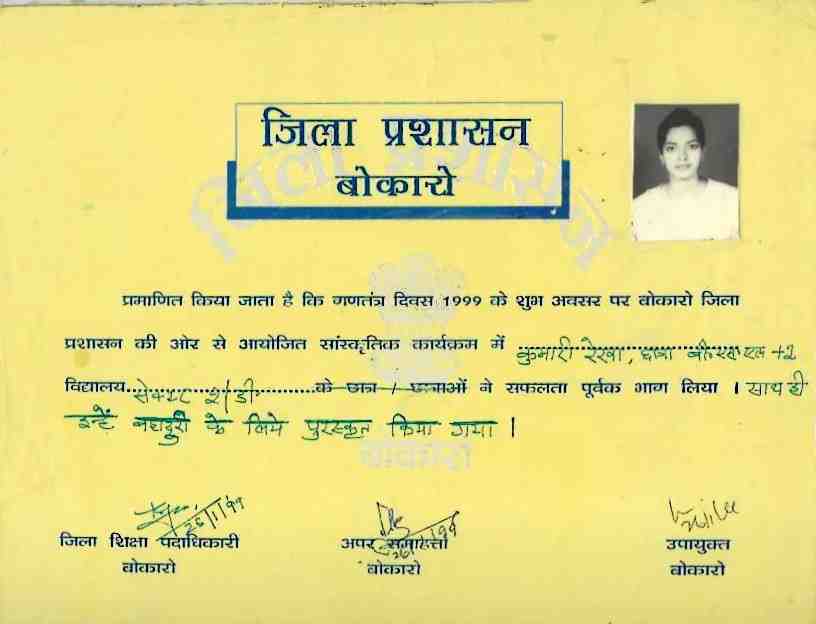 जिला प्रशासन
बोकारो
प्रमाणित किया जाता है कि गणतंत्र दिवस 1999 के शुभ अवसर पर बोकारो जिला
प्रशासन की ओर से आयोजित सांस्कृतिक कार्यक्रम में कुमारी रेखा, छात्रा +2
विद्यालय सेक्टर डी के छात्र / छात्राओं ने सफलता पूर्वक भाग लिया । साथ ही
इन्हें बहादुरी के लिये पुरस्कृत किया गया ।
26/1/99
जिला शिक्षा पदाधिकारी
बोकारो
अपर समाहर्त्ता
बोकारो
उपायुक्त
बोकारो